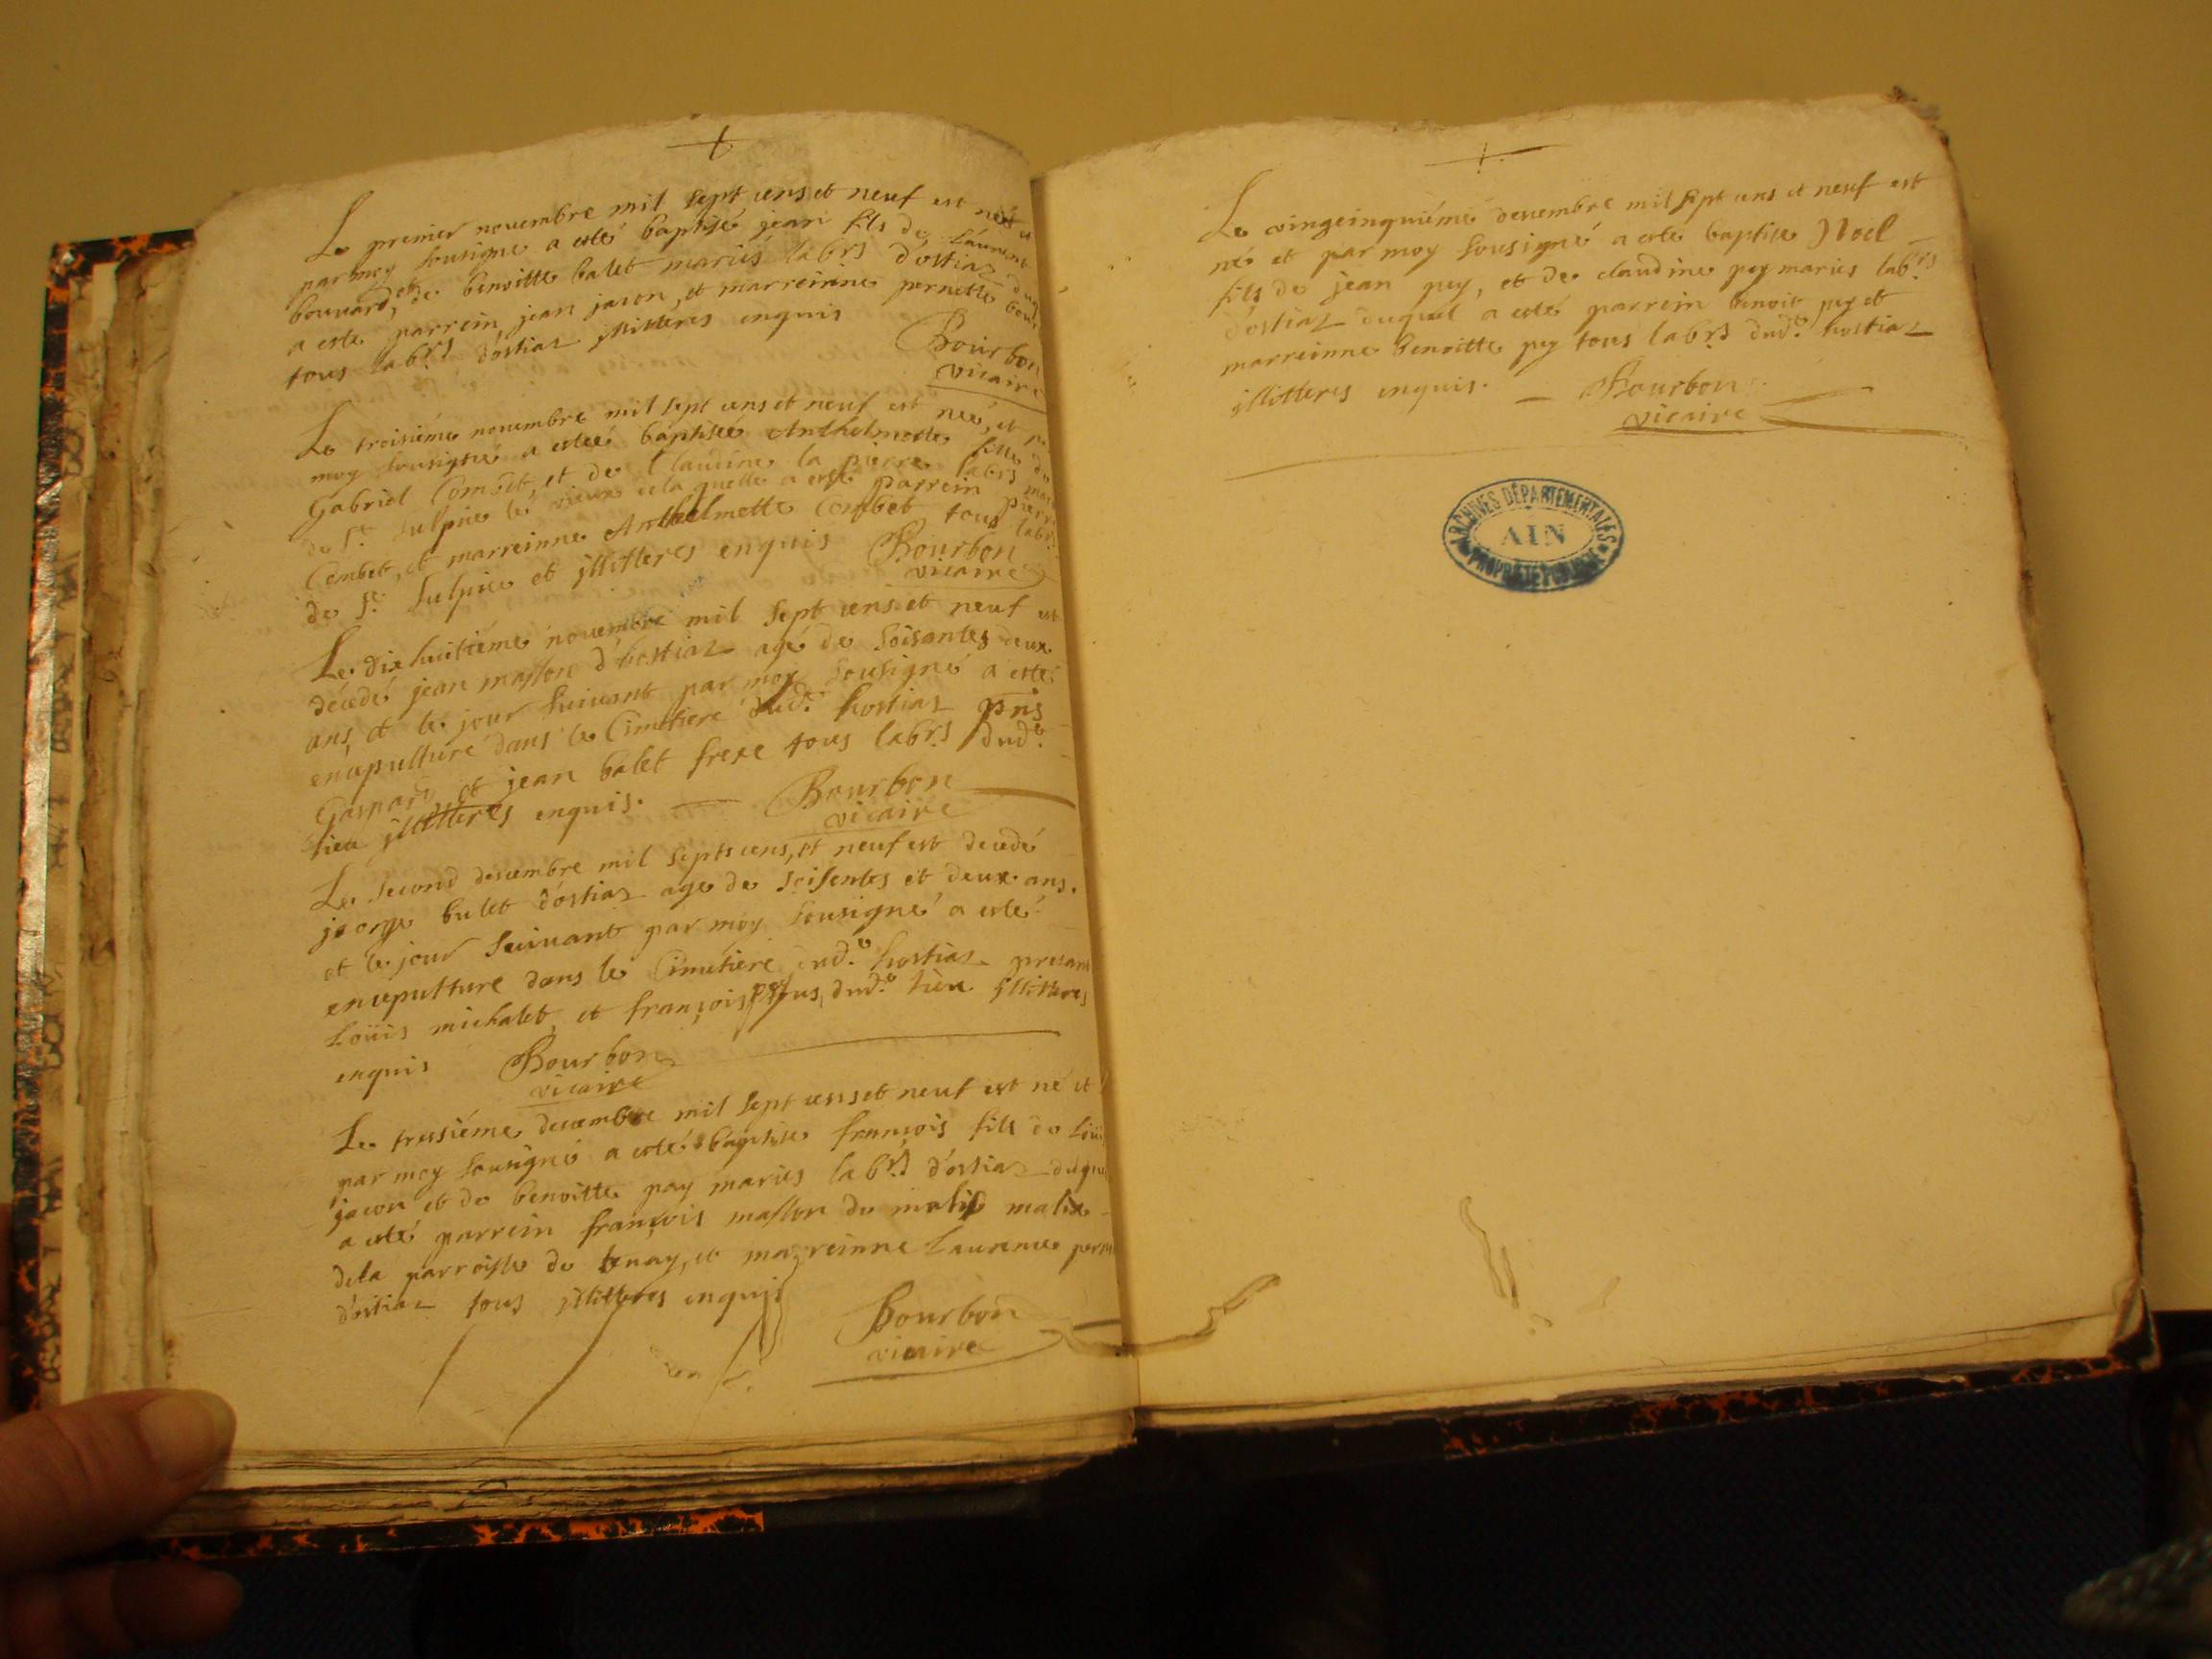 Le premier novembre mil sept cens et neuf est né et
par moy sousigne a esté baptisé jean fils de Laurent
bouvard, et de benoitte balet mariés labrs d'ostiaz duq
a esté parrein jean jacon, et marreinne pernette bou
tous labrs d'ostiaz jllitteres enquis
Bourbon
vicaire
Le troisiéme novembre mil sept cens et neuf est neé, et p
moy sousigné a esteé baptisée Anthelmette fille de
Gabriel Combet, et de Claudine la pierre labrs mar
de St. Sulpice le vieux de la quelle a esté parrein pierre
Combet, et marreinne Anthelmette Combet tous labrs
de St. Sulpice et jllitteres enquis Bourbon
vicaire
Le dixhuittiéme novembre mil sept cens et neuf est
décedé jean masson d'hostiaz agé de soisantes deux
ans, et le jour suivant par moy sousigné a esté
ensepulturé dans le Cimetiere dude. hostiaz pns
Gaspard, et jean balet frere tous labrs dude.
lieu jllitteres enquis. Bourbon
vicaire
Le second decembre mil septs cens, et neuf est decedé
jeorge bulet d'ostiaz age de soisentes et deux ans.
et le jour suivant par moy sousigné a esté
ensepulturé dans le Cimetiere dude. hostiaz presans
Loüis michalet, et françois pey tous dude. lieu jllitteres
enquis Bourbon
vicaire
Le tressiéme decembre mil sept cens et neuf est né et
par moy sousigné a esté baptisé françois fils de Loüi
jacon et de benoitte pay mariés labrs d'ostiaz duque
a esté parrein françois masson du malix
dela parroisse de tenay, et marreinne Laurence pern
d'ostiaz tous jllitteres enquis
Bourbon
vicaire
Le vingcinquiéme decembre mil sept cens et neuf est
né et par moy sousigné a esté baptise Noel
fils de jean pey, et de claudine pey mariés labrs
d'ostiaz duquel a esté parrein benoit pey et
marreinne benoitte pey tous labrs dude. hostiaz
jllitteres enquis. Bourbon
vicaire
ARCHIVES DÉPARTEMENTALES
AIN
PROPRIÉTÉ PUBLIQUE